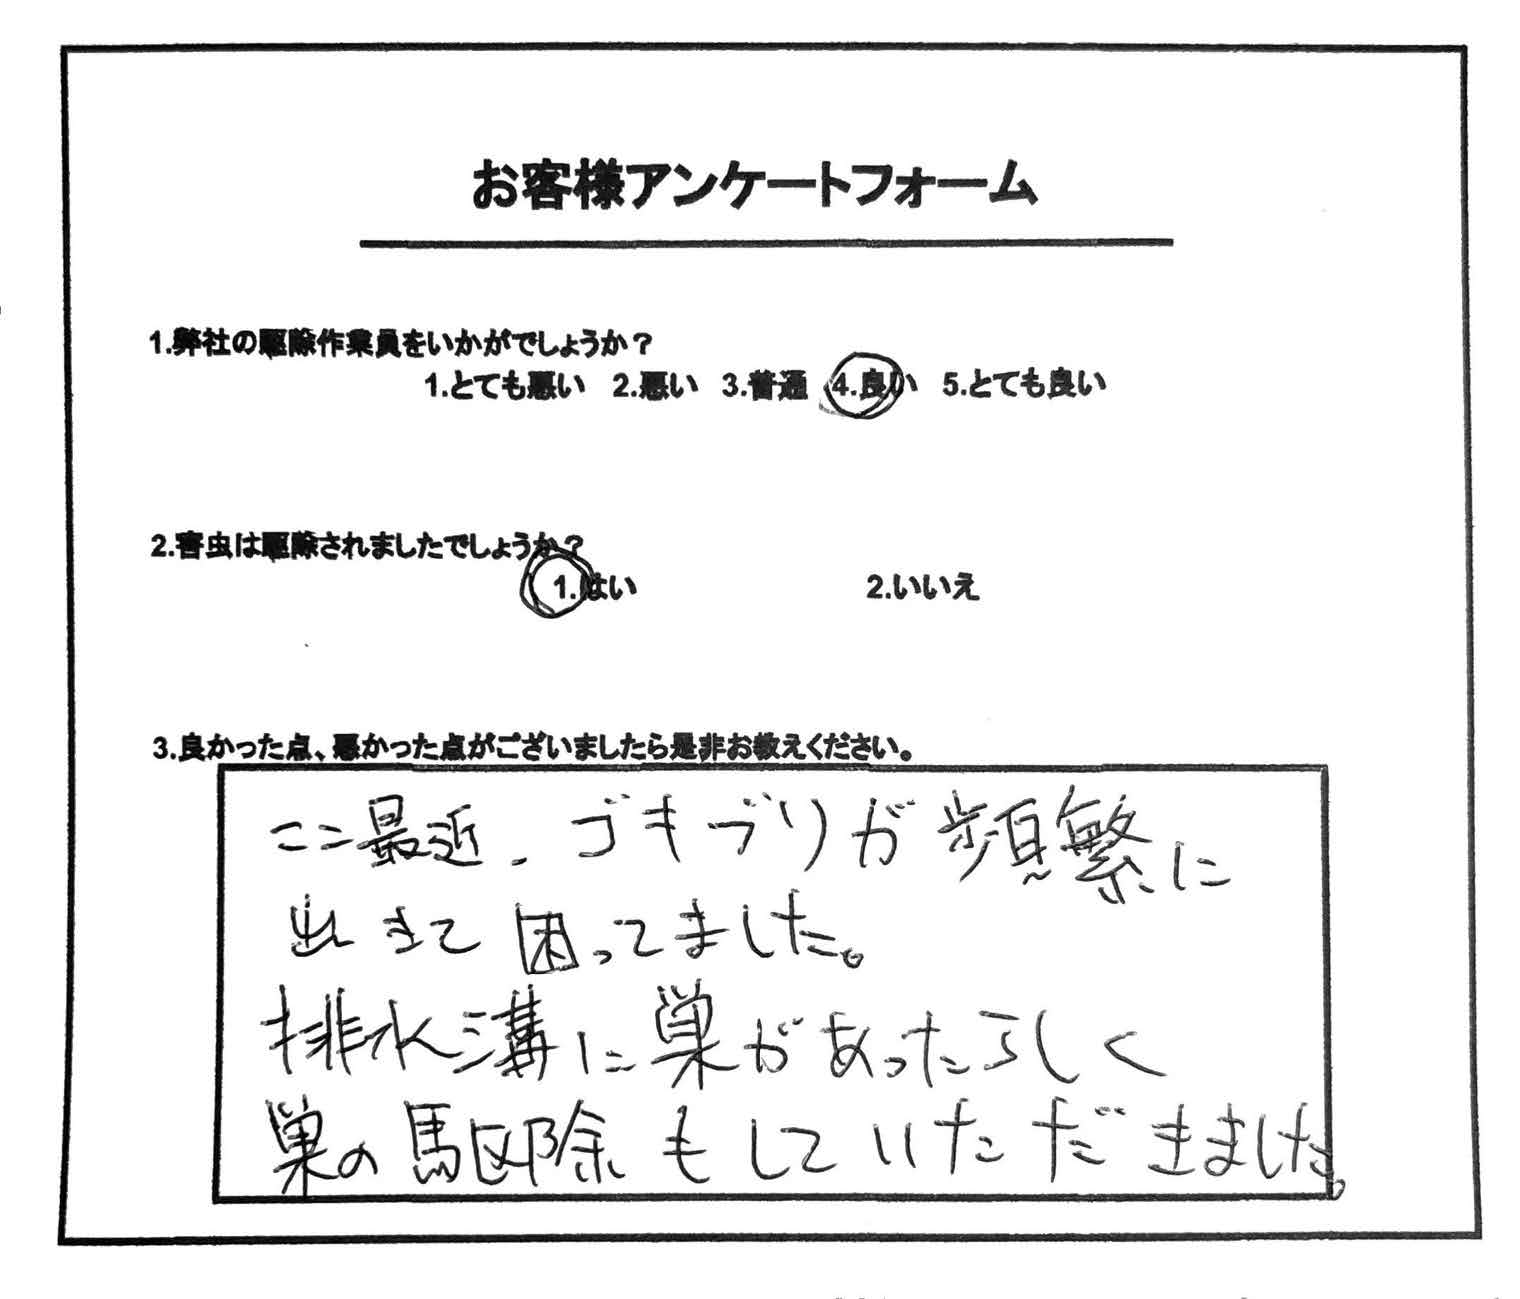 お客様アンケートフォーム
1.弊社の駆除作業員をいかがでしょうか?
1.とても悪い 2.悪い 3.普通 4.良い 5.とても良い
2.害虫は駆除されましたでしょうか?
1.はい 2.いいえ
3.良かった点、悪かった点がございましたら是非お教えください。
ここ最近、ゴキブリが頻繁に
出きて困ってました。
排水溝に巣があったらしく
巣の駆除もしていただきました。